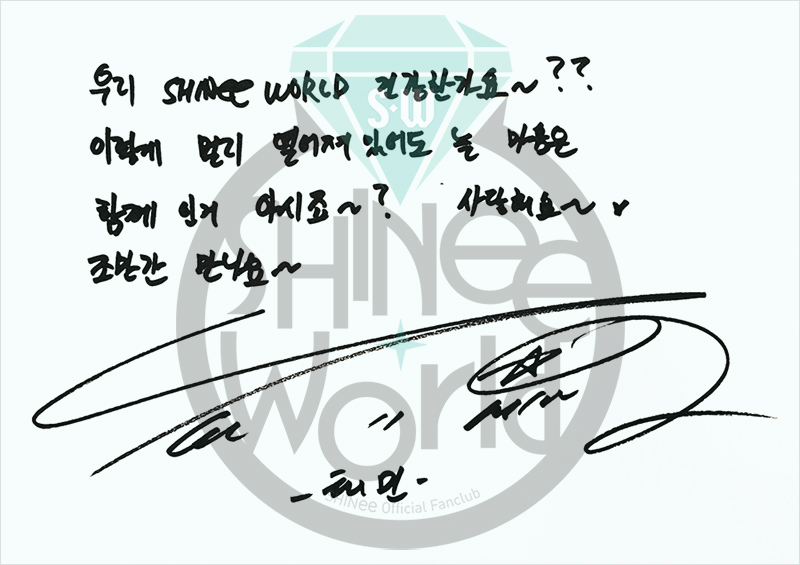 우리 SHINee WORLD 건강한가요~??
이렇게 멀리 떨어져 있어도 늘 마음은
함께 인거 아시죠~? 사랑해요~ ♥
조만간 만나요~
-태민-
S·W
SHINee
World
SHINee Official Fanclub